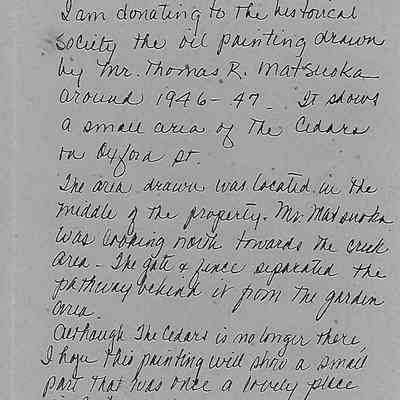 I am donating to the historical
society the oil painting drawn
by Mr. Thomas R. Matsuoka
around 1946-47. It shows
a small area of The Cedars
on Oxford St.
The area drawn was located in the
middle of the property. Mr. Matsuoka
was looking north towards the creek
area. The gate & fence separated the
pathway behind it from the garden
area.
Although The Cedars is no longer there,
I hope this painting will show a small
part that was once a lovely place